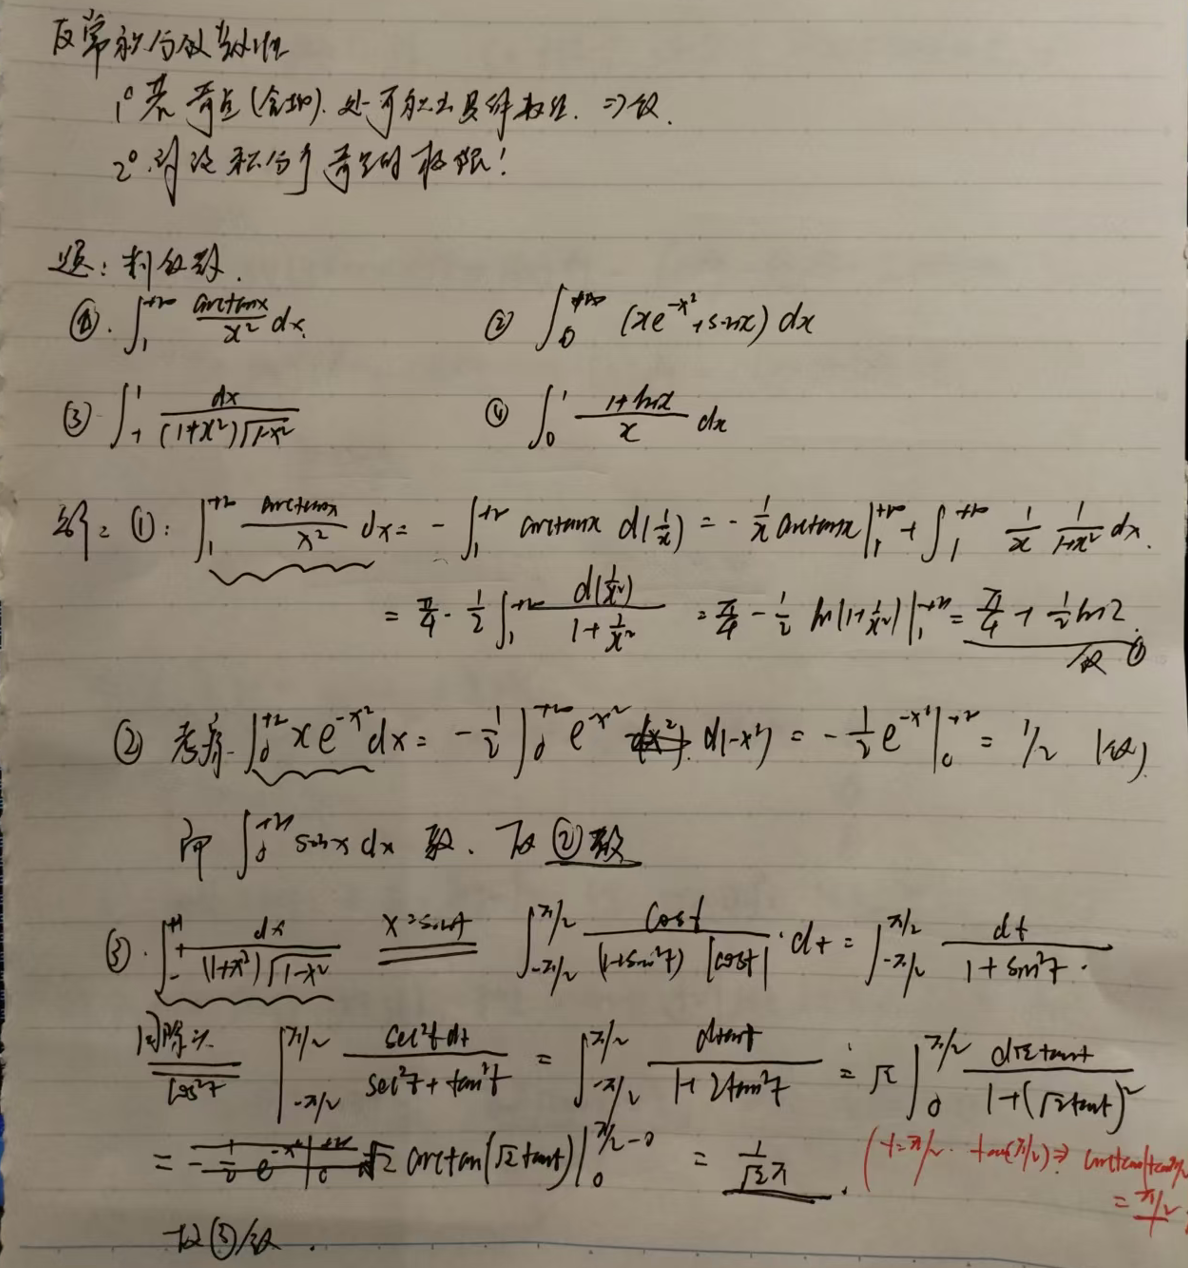 反常积分敛散性
1° 若奇点(含∞)处可积出具体数值. ⇒敛.
2° 讨论积分于奇点的极限!
题: 判敛散.
①. ∫₁^{+∞} arctanx/x² dx. ② ∫₀^{+∞} (xe^{-x²}+sinx) dx
③ ∫₋₁^1 dx/((1+x²)√(1-x²)) ④ ∫₀^1 (1+lnx)/x dx
解: ①: ∫₁^{+∞} arctanx/x² dx = -∫₁^{+∞} arctanx d(1/x) = -1/x arctanx |₁^{+∞} + ∫₁^{+∞} 1/x 1/(1+x²) dx.
= π/4 - 1/2 ∫₁^{+∞} d(1/x²)/(1+1/x²) = π/4 - 1/2 ln(1+1/x²)|₁^{+∞} = π/4 + 1/2 ln2.
敛 ①
② 考虑 ∫₀^{+∞} xe^{-x²}dx = -1/2 ∫₀^{+∞} e^{-x²} d(-x²) = -1/2 e^{-x²}|₀^{+∞} = 1/2 (敛).
而 ∫₀^{+∞} sinx dx 散. 故②散
③. ∫₋₁^{+1} dx/((1+x²)√(1-x²)) x=sint ∫_{-π/2}^{π/2} cost/((1+sin²t)|cost|)·dt = ∫_{-π/2}^{π/2} dt/(1+sin²t).
同除以cos²t ∫_{-π/2}^{π/2} sec²t dt/(sec²t+tan²t) = ∫_{-π/2}^{π/2} dtant/(1+2tan²t) = √2 ∫₀^{π/2} d√2tant/(1+(√2tant)²)
= √2 arctan(√2tant)|₀^{π/2-0} = 1/√2 π. (t=π/2. tan(π/2)⇒ arctan(tanπ/2
= π/2
故③敛.